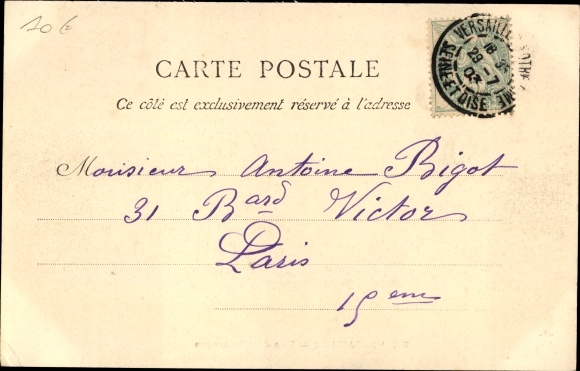 10 €
CARTE POSTALE
Ce côté est exclusivement réservé à l'adresse
VERSAILLES
18
29 - 7
03
SEINE ET OISE
Monsieur Antoine Bigot
31 Bard Victor
Paris
15 eme